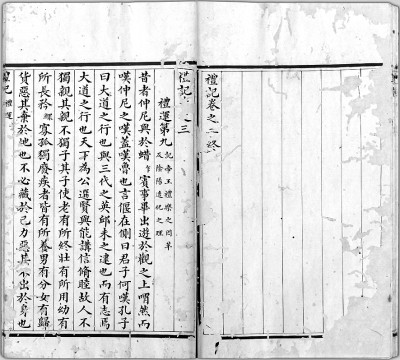 禮記卷之二終
禮記 之三
禮運第九 記帝王禮樂之因革
及陰陽造化之理
昔者仲尼與於蜡賓事畢出遊於觀之上喟然而
嘆仲尼之嘆蓋嘆魯也言偃在側曰君子何嘆孔子
曰大道之行也與三代之英丘未之逮也而有志焉
大道之行也天下為公選賢與能講信脩睦故人不
獨親其親不獨子其子使老有所終壯有所用幼有
所長矜寡孤獨廢疾者皆有所養男有分女有歸
貨惡其棄於地也不必藏於己力惡其不出於身也
禮記 禮運